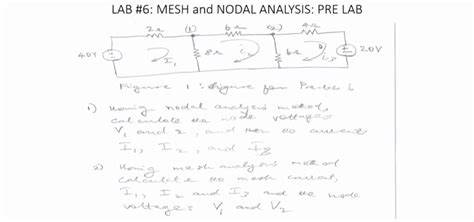 LAB #6: MESH and NODAL ANALYSIS: PRE LAB
2Ω (1) 6Ω (2) 4Ω
40V I1 8Ω i2 6Ω i3 20V
Figure 1: Figure for Pre-lab 6
1) Using nodal analysis method,
calculate the node voltages
V1 and 2, and then the currents
I1, I2, and I3
2) Using mesh analysis method
calculate the mesh current,
I1, I2 and I3 and the node
voltages V1 and V2